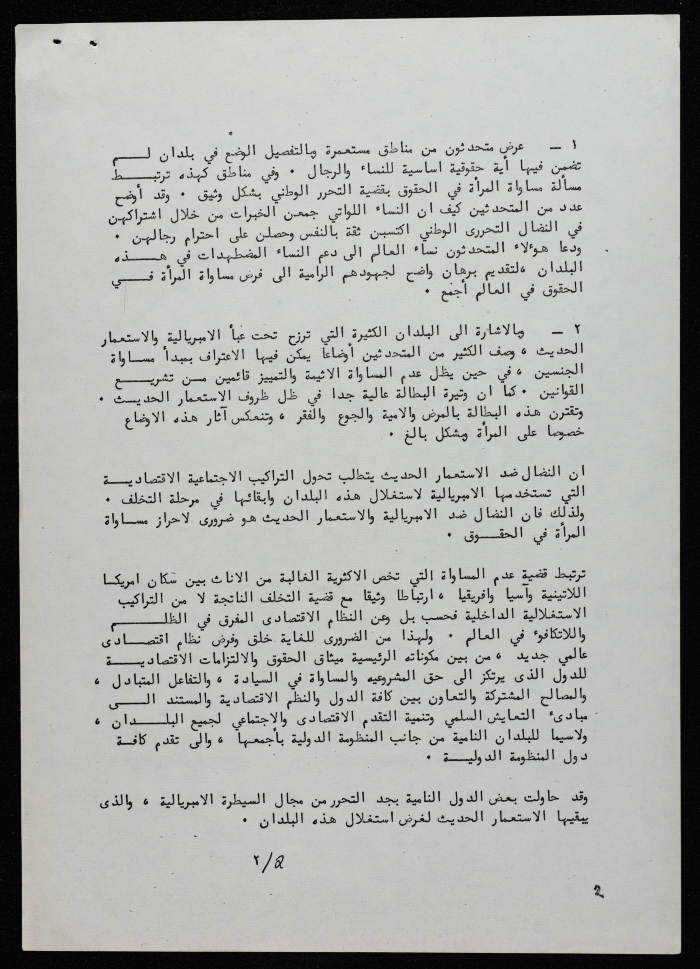 ١ ـ عرض متحدثون من مناطق مستعمرة وبالتفصيل الوضع في بلدان لــم
تضمن فيها أية حقوقية اساسية للنساء والرجال ٠ وفي مناطق كهذه ترتبــط
مسألة مساواة المرأة في الحقوق بقضية التحرر الوطني بشكل وثيق ٠ وقد أوضح
عدد من المتحدثين كيف ان النساء اللواتي جمعن الخبرات من خلال اشتراكهن
في النضال التحررى الوطني اكتسبن ثقة بالنفس وحصلن على احترام رجالهن ٠
ودعا هوءلاء المتحدثون نساء العالم الى دعم النساء المضطهدات في هــذه
البلدان ، لتقديم برهان واضح لجهودهم الرامية الى فرض مساواة المرأة فــي
الحقوق في العالم أجمع ٠
٢ ـ وبالاشارة الى البلدان الكثيرة التي ترزح تحت عبأ الامبريالية والاستعمار
الحديث ، وصف الكثير من المتحدثين أوضاعا يمكن فيها الاعتراف بمبدأ مســاواة
الجنسين ، في حين يظل عدم المساواة الاثيمة والتمييز قائمين مــن تشريــع
القوانين ٠ كما ان وتيرة البطالة عالية جدا في ظل ظروف الاستعمار الحديــث ٠
وتقترن هذه البطالة بالمرض والامية والجوع والفقر ، وتنعكس آثار هذه الاوضاع
خصوصا على المرأة وبشكل بالغ ٠
ان النضال ضد الاستعمار الحديث يتطلب تحول التراكيب الاجتماعية الاقتصاديــة
التي تستخدمها الامبريالية لاستغلال هذه البلدان وابقائها في مرحلة التخلف ٠
ولذلك فان النضال ضد الامبريالية والاستعمار الحديث هو ضرورى لاحراز مســاواة
المرأة في الحقــوق ٠
ترتبط قضية عدم المساواة التي تخص الاكثرية الغالبة من الاناث بين سكان امريكـا
اللاتينية وآسيا وافريقيا ، ارتباطا وثيقا مع قضية التخلف الناتجة لا من التراكيب
الاستغلالية الداخلية فحسب بل وعن النظام الاقتصادى المفرق في الظلــم
واللاتكافوء في العالم ٠ ولهذا من الضرورى للغاية خلق وفرض نظام اقتصــادى
عالمي جديد ، من بين مكوناته الرئيسية ميثاق الحقوق والالتزامات الاقتصاديــة
للدول الذى يرتكز الى حق المشروعيه والمساواة في السيادة ، والتفاعل المتبادل ،
والمصالح المشتركة والتعاون بين كافة الدول والنظم الاقتصادية والمستند الــى
مبادىء التعايش السلمي وتنمية التقدم الاقتصادى والاجتماعي لجميع البلــدان ،
ولاسيما للبلدان النامية من جانب المنظومة الدولية بأجمعها ، والى تقدم كافــة
دول المنظومة الدوليــة ٠
وقد حاولت بعض الدول النامية بجد التحرر من مجال السيطرة الامبريالية ، والذى
يبقيها الاستعمار الحديث لغرض استغلال هذه البلدان ٠
٢/a
2